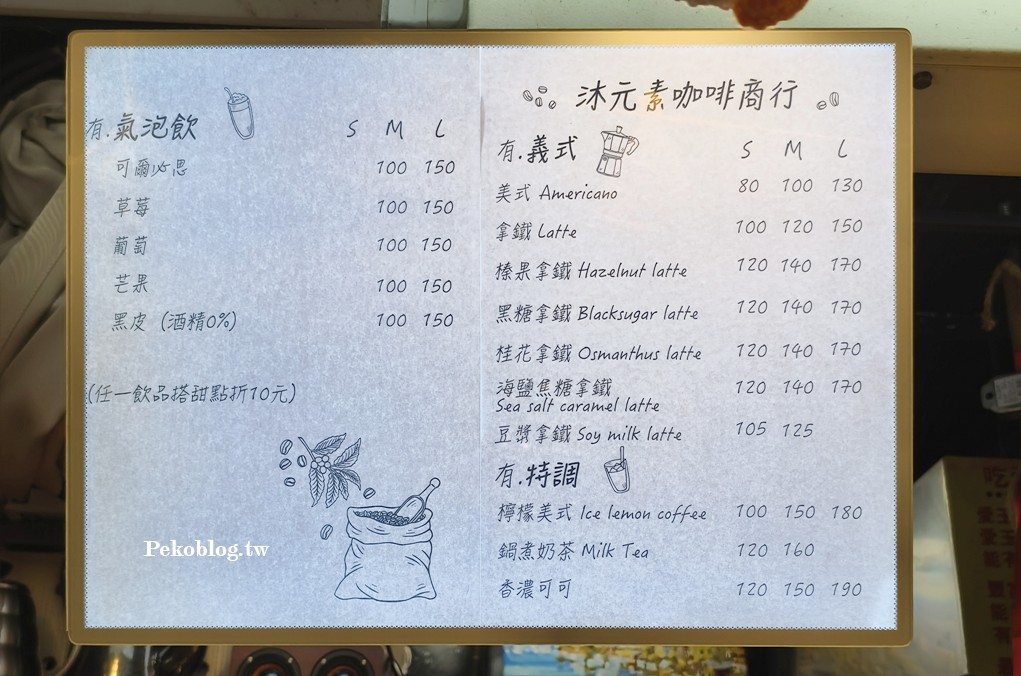 有.氣泡飲 S M L
可爾必思 100 150
草莓 100 150
葡萄 100 150
芒果 100 150
黑皮 (酒精0%) 100 150
(任一飲品搭甜點折10元)
Pekoblog.tw
沐元素咖啡商行
有.義式 S M L
美式 Americano 80 100 130
拿鐵 Latte 100 120 150
榛果拿鐵 Hazelnut latte 120 140 170
黑糖拿鐵 Blacksugar latte 120 140 170
桂花拿鐵 Osmanthus latte 120 140 170
海鹽焦糖拿鐵 120 140 170
Sea salt caramel latte
豆漿拿鐵 Soy milk latte 105 125
有.特調
檸檬美式 Ice lemon coffee 100 150 180
鍋煮奶茶 Milk Tea 120 160
香濃可可 120 150 190